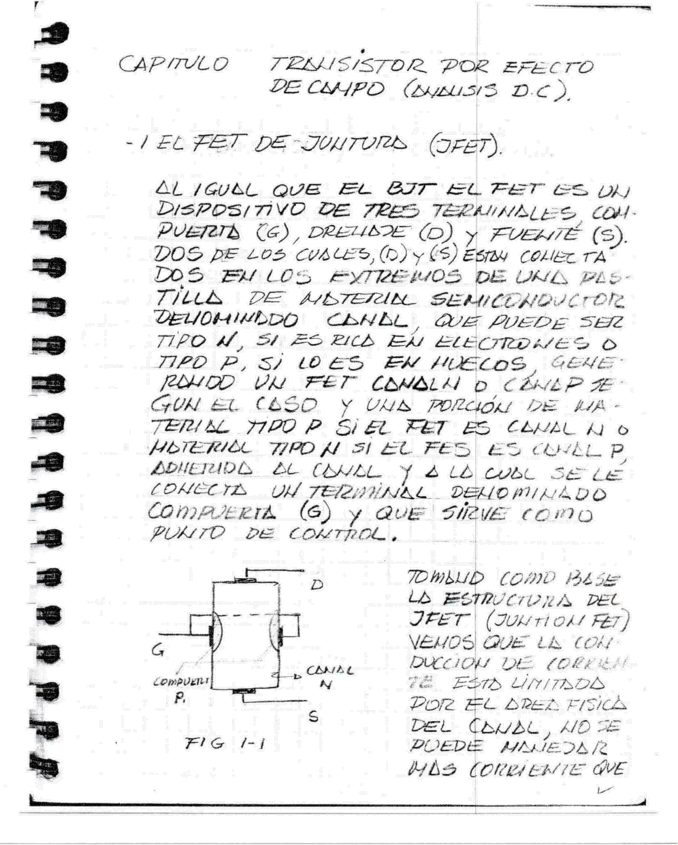 CAPITULO TRANSISTOR POR EFECTO
DE CAMPO (ANALISIS D.C).
-1 EL FET DE JUNTURA (JFET).
AL IGUAL QUE EL BJT EL FET ES UN
DISPOSITIVO DE TRES TERMINALES, COM-
PUERTA (G), DRENADE (D) y FUENTE (S).
DOS DE LOS CUALES, (D) y (S) ESTAN CONECTA
DOS EN LOS EXTREMOS DE UNA PAS-
TILLA DE MATERIAL SEMICONDUCTOR
DENOMINADO CANAL, QUE PUEDE SER
TIPO N, SI ES RICA EN ELECTRONES O
TIPO P, SI LO ES EN HUECOS, GENE-
RANDO UN FET CANAL N O CANAP SE-
GUN EL CASO Y UNA PORCIÓN DE MA-
TERIAL TIPO P SI EL FET ES CANAL N O
MATERIAL TIPO N SI EL FES ES CANAL P,
ADHERIDA AL CANAL Y A LA CUAL SE LE
CONECTA UN TERMINAL DENOMINADO
COMPUERTA (G) y QUE SIRVE COMO
PUNTO DE CONTROL.
D
G
COMPUERTA
P.
CANAL
N
S
FIG 1-1
TOMAND COMO BASE
LA ESTRUCTURA DEL
JFET (JUNTION FET)
VEMOS QUE LA CON
DUCCION DE CORRIEN-
TE ESTA LIMITADA
POR EL AREA FISICA
DEL CANAL, NO SE
PUEDE MANEJAR
MAS CORRIENTE QUE